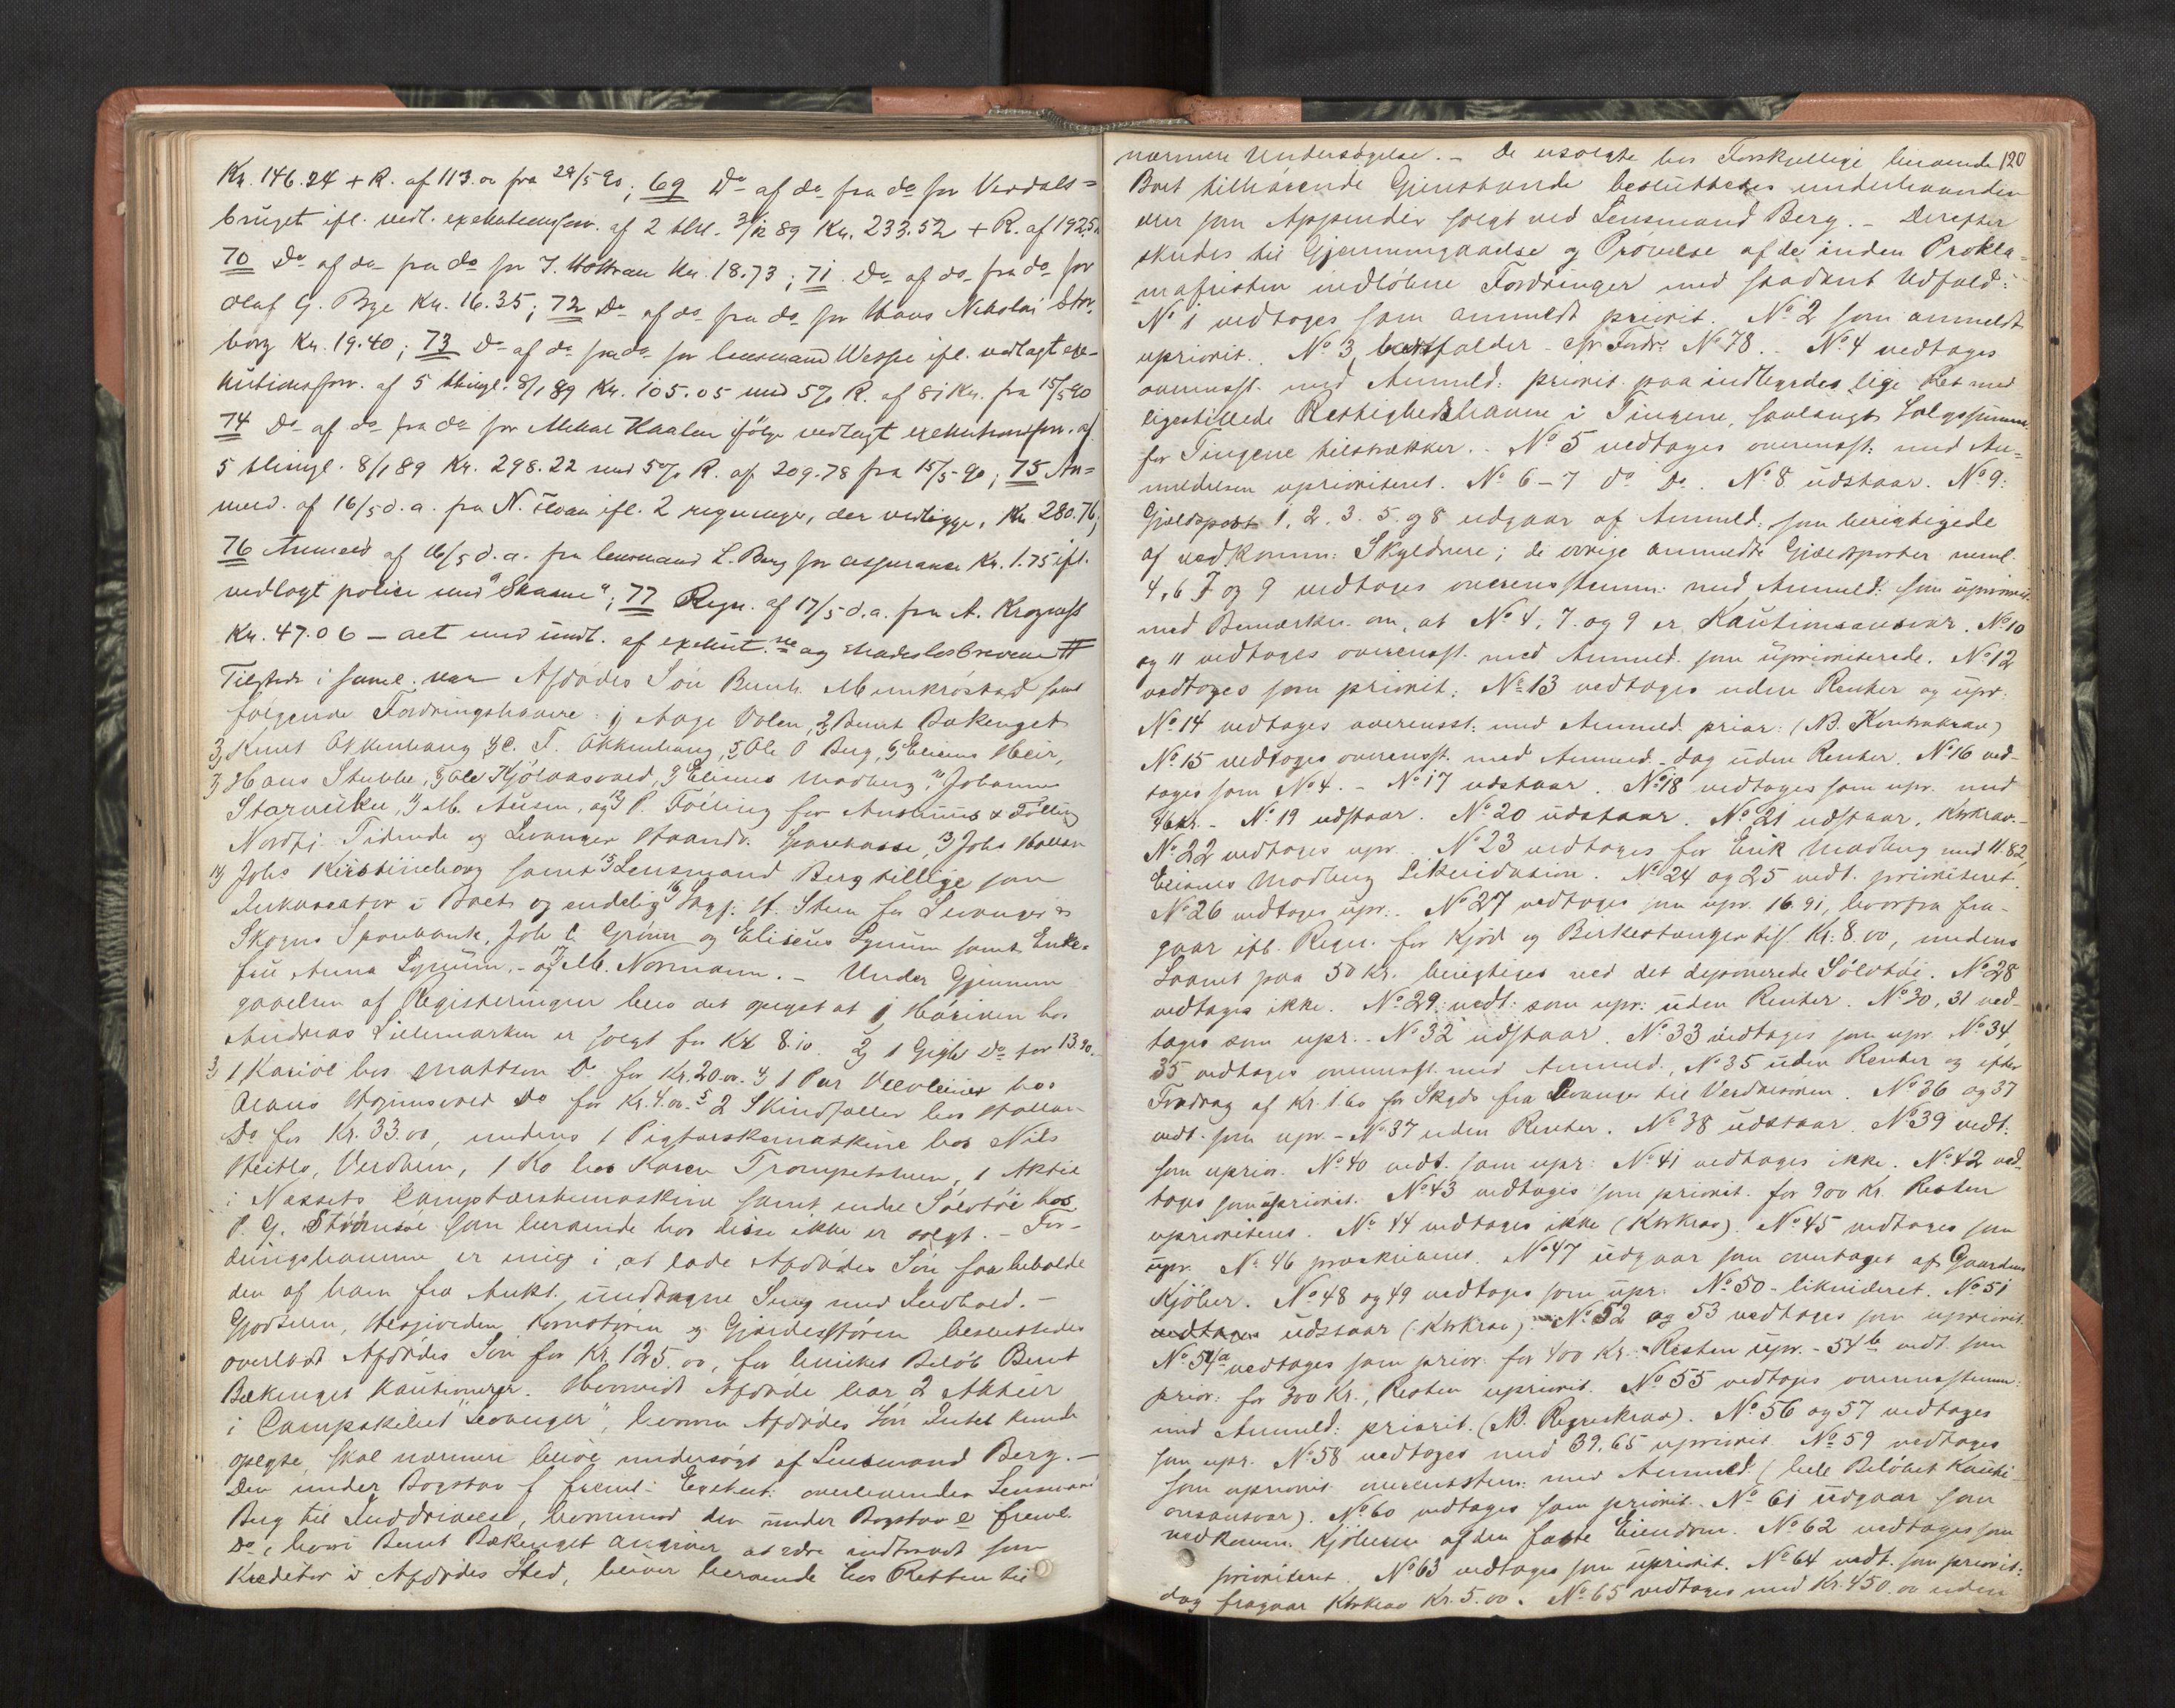 Kr. 146.24 + R. af 113.00 fra 29/5 90; 69 Do af do fra do for Verdals=
bruget ifl. vedl. exekutionsforr. af 2 3/12 89 Kr. 233.52 + R. af 192.52
70 Do af do fra do for J. Kr. 18.73; 71. Do af do fra do for
Olaf G. Bye Kr. 16.35; 72 Do af do fra do for Hans Nikolai Stor-
borg Kr. 19.40; 73 Do af do fra do for lensmand Wessel ifl. vedlagt exe-
kutionsforr. af 5 8/1 89 Kr. 105.05 med 5% R. af 81 Kr. fra 15/5 90
74 Do af do fra do for Mikal Haalen ifølge vedlagt exekutionsforr. af
5 8/1 89 Kr. 298.22 med 5% R. af 209.78 fra 15/5 90; 75 An=
meld. af 16/5 d.a. fra N. ifl. 2 regninger, der vedligge, Kr 280.76;
76 Anmeld af 16/5 d.a. fra lensmand L. Berg for assurance Kr. 1.75 ifl.
vedlagt police med "Skaane"; 77 Regn. af 17/5 d.a. fra A. Krogness
Kr. 47.06 – alt med undt. af exekut.ne og skadesløsbrevene #
Tilstede i saml. var Afdødes Søn Bernh. Munkrøstad samt
følgende Fordringshavere: 1) Aage Volen, 2) Bernt Bakenget
3) Knut Okkenhaug 4) C. T. Okkenhaug, 5) Ole O Berg, 6) Elianus Heir,
7) Hans Stubbe, 8) Ole Kjølaasvald, 9) Elianus Modberg, 10) Johannes
Starviken, 11) M. Ausen, og 12) P. Følling for Ausenius & Følling
Nordtr. Tidende og Levanger Haandv. Sparekasse, 13) Johs Hallan
14) Johs Kirstineborg samt 15) Lensmand Berg tillige som
Inkassator i Boet og endelig 16) Sagf. H. Steen for Levanger &
Skogns Sparebank, Joh C. Grønn og Eliseus Lynum samt Enke-
fru Anna Lynum. – og 17) M. Normann. – Under Gjennem
gaaelsen af Registeringen blev det oplyst at 1) Høriven hos
Andreas Lillemarken er solgt for Kr 8.10. 2) 1 Gigle Do for 13.20.
3) 1 Kariol hos Mattson Do for Kr. 20.00. 4) 1 Par Vævleier hos
Olaus Do for Kr. 4.00. 5 2 Skindfeller hos Hallan
Do for Kr. 33.00, medens 1 Pigtærskemaskine hos Nils
Heitlo, Verdalen, 1 Ko hos Karen Trompetsteen, 1 Aktie
i Næssets Damptærskemaskine samt endel Sølvtøi hos
P. G. som beroende hos disse ikke er solgt. – For-
dringshaverne er enige i at lade Afdødes Søn faa beholde
den af ham fra Aukt. undtagne Seng med Indhold. –
Gjødselen, Hesjeveden Kornstøren og Gjærdesstøren besluttedes
overladt Afdødes Søn for Kr. 125.00, for hvilket Beløb Bernt
Bækenget kautionerer. Hvorvidt Afdøde har 2 Aktier
i Dampskibet "Levanger", hvorom Afdødes Søn Intet kunde
oplyse, skal nærmere blive undersøgt af Lensmand Berg. –
Den under Bogstav f freml. Exekut. overleveredes Lensmand
Berg til Inddrivelse, hvorimod den under Bogstav e freml.
Do, hvori Bernt Bækenget angiver at være indtraadt som
Kreditor i Afdødes Sted, bliver beroende hos Retten til
120
nærmere Undersøgelse. – De usolgte hos Forskjellige beroende
Boet tilhørende Gjenstande besluttedes underhaanden
eller som Appendix solgt ved Lensmand Berg. – Derefter
skredes til Gjennemgaaelse og Prøvelse af de inden Prokla-
mafristen indløbne Fordringer med saadant Udfald:
No 1 vedtoges som anmeldt priorit. No 2 som anmeldt
upriorit. No 3, bortfalder – cfr Fordr. No 78. – No 4 vedtages
overensst. med Anmeld: priorit. paa indbyrdes lige Ret med
ligestillede Rettighedshavere i Tingene, saalangt Salgssummen
for Tingene tilstrækker. – No 5 vedtages overensst: med An-
meldelsen uprioriteret. No 6–7 do Do. No 8 udstaar. No 9:
Gjeldspost 1, 2. 3. 5. og 8 udgaar af Anmeld: som berigtigede
af vedkomm: Skyldnere; de øvrige anmeldte Gjældsposter neml.
4, 6 7 og 9 vedtages overensstemm: med Anmeld: som upriorit.
med Bemærkn. om, at No 4, 7. og 9 er Kautionsansvar. No 10
og 11 vedtages overensst. med Anmeld. som uprioriterede. No 12
vedtages som priorit: No 13 vedtages uden Renter og upr.
No 14 vedtages overensst: med Anmeld. prior: (NB. Kontrakrav)
No 15 vedtages overensst. med Anmeld. – dog uden Renter. No 16 ved-
tages som No 4. – No 17 udstaar. No 18 vedtages som upr. med
36 Kr. – No 19 udstaar. No 20 udstaar. No 21 udstaar, Ktrkrav. –
No 22 vedtages upr. No 23 vedtages for Erik Modberg med 11.82,
Elianus Modberg Likvidation. No 24 og 25 vedt. prioriteret.
No 26 vedtages upr. – No 27 vedtages som upr. 16.91, hvorfra fra-
gaar ifl. Regn. for Kjød og Birkestanger tils. Kr. 8.00, medens
Laanet paa 50 Kr. berigtiges ved det deponerede Sølvtøi. No 28
vedtages ikke. No 29. vedt: som upr: uden Renter. No 30, 31 ved-
tages som upr. – No 32 udstaar. No 33 vedtages som upr. No 34,
35 vedtages overensst. med Anmeld., No 35 uden Renter og efter
Fradrag af Kr. 1.60 for Skyds fra Levanger til Verdalsøren. No 36 og 37
vedt. som upr. – No 37 uden Renter. No 38 udstaar. No 39 vedt.
som uprior. No 40 vedt. som upr: No 41 vedtages ikke. No 42 ved-
tages som upriorit. No 43 vedtages som priorit. for 900 Kr. Resten
uprioriteres. No 44 vedtages ikke (Ktrkrav). No 45 vedtages som
upr. No 46 præskriberes. No 47 udgaar som overtaget af Gaardens
Kjøber. No 48 og 49 vedtages som upr: No 50 – likvideret. No 51
vedtages udstaar (Ktrkrav). No 52 og 53 vedtages som upriorit.
No 54a vedtages som prior: for 400 Kr. – Resten upr. – 54b vedt. som
prior: for 300 Kr., Resten upriorit. No 55 vedtages overensstemm:
med Anmeld: priorit. (NB. Regreskrav). No 56 og 57 vedtages
som upr. No 58 vedtages med 39.65 upriorit No 59 vedtages
som upriorit overensstem: med Anmeld. (hele Beløbet Kauti-
onsansvar). No 60 vedtages som priorit. No 61 udgaar som
vedkomm. Kjøberen af den faste Eiendom. No 62 vedtages som
prioriteret. No 63 vedtages som upriorit. No 64 vedt. som priorit:
dog fragaar Ktrkrav Kr. 5.00. No 65 vedtages med Kr. 450.00 uden